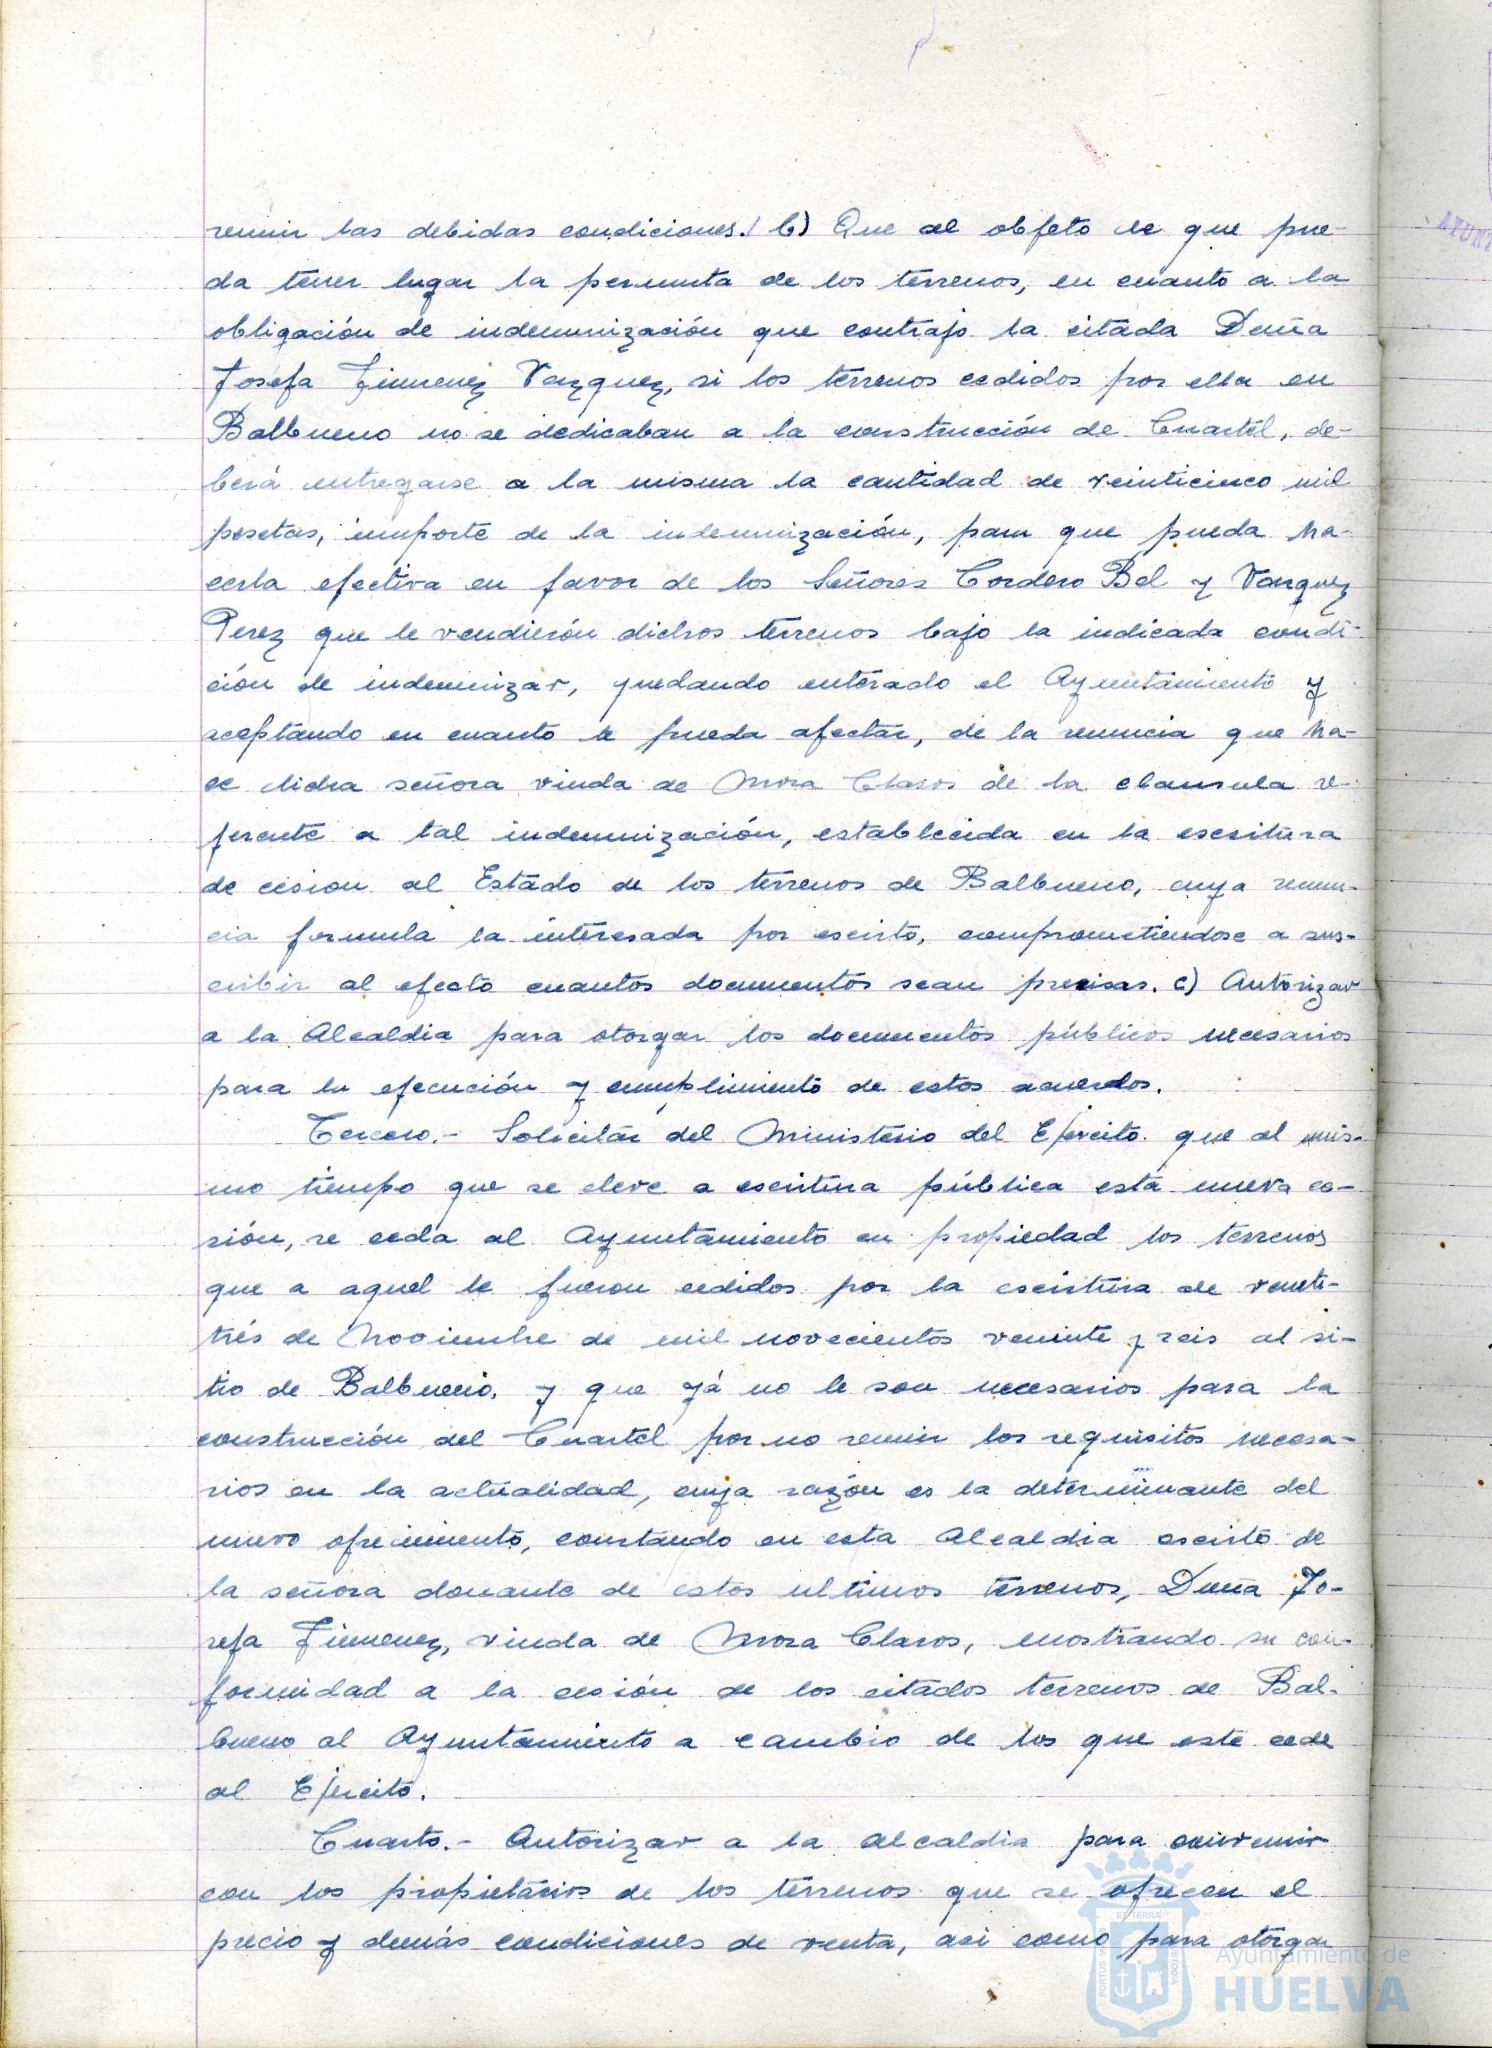 reunir las debidas condiciones. b) Que al objeto de que pue-
da tener lugar la permuta de los terrenos, en cuanto a la
obligación de indemnización que contrajo la citada Doña
Josefa Jimenez Vazquez, si los terrenos cedidos por ella en
Balbueno no se dedicaban a la construcción de Cuartel, de-
berá entregarse a la misma la cantidad de veinticinco mil
pesetas, importe de la indemnización, para que pueda ha-
cerla efectiva en favor de los Señores Cordero Bel y Vazquez
Perez que le vendierón dichos terrenos bajo la indicada condi-
ción de indemnizar, quedando enterado el Ayuntamiento y
aceptando en cuanto le pueda afectar, de la renuncia que ha-
ce dicha señora viuda de Mora Claros de la clausula re-
ferente a tal indemnización, establecida en la escritura
de cesion al Estado de los terrenos de Balbueno, cuya renun-
cia formula la interesada por escrito, comprometiendose a sus-
cribir al efecto cuantos documentos sean precisas. c) Autorizar
a la Alcaldia para otorgar los documentos públicos necesarios
para la ejecución y cumplimiento de estos acuerdos.
Tercero.- Solicitar del Ministerio del Ejército que al mis-
mo tiempo que se eleve a escritura pública está nueva ce-
sión, se ceda al Ayuntamiento en propiedad los terrenos
que a aquel le fueron cedidos por la escritura de venti-
trés de Noviembre de mil novecientos veninte y seis al si-
tio de Balbueno, y que yá no le son necesarios para la
construcción del Cuartel por no reunir los requisitos necesa-
rios en la actualidad, cuya razón es la determinante del
nuevo ofrecimiento, constando en esta Alcaldia escrito de
la señora donante de estos ultimos terrenos, Doña Jo-
sefa Jimenez, viuda de Mora Claros, mostrando su con-
formidad a la cesión de los citados terrenos de Bal-
bueno al Ayuntamiento a cambio de los que este cede
al Ejército.
Cuarto.- Autorizar a la alcaldia para convenir
con los propietarios de los terrenos que se ofrecen el
precio y demás condiciones de venta, asi como para otorgar
Ayuntamiento de
HUELVA
AYUNT